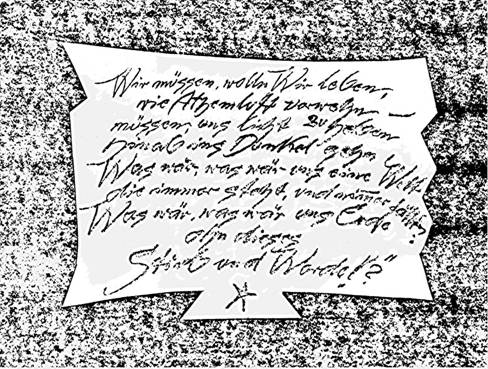 Wir müssen, wolln Wir leben,
wie Athemluft verwehn –
müssen, uns Licht zu heben
hinab ins Dunkel gehn
Was wär, was wär uns eine Welt
die nimmer steigt, und nimmer fällt?
Was wär, was wär uns Erde
ohn dieses
Stirb und Werde!?"